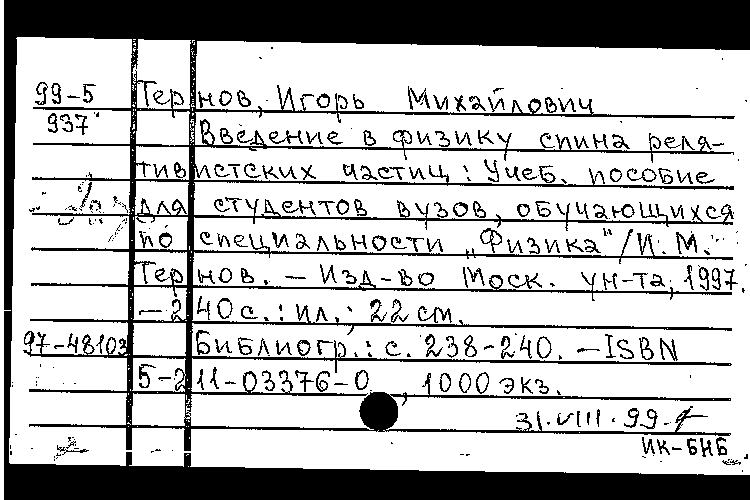 99-5 Тернов, Игорь Михайлович
937 Введение в физику спина реля-
тивистских частиц : Учеб. пособие
для студентов вузов, обучающихся
по специальности „Физика" / И. М.
Тернов. — Изд-во Моск. ун-та, 1997.
— 240 с. : ил. ; 22 см.
97-48103 Библиогр.: с. 238-240. — ISBN
5-211-03376-0, 1000 экз.
31.VIII.99.
ИК-БНБ